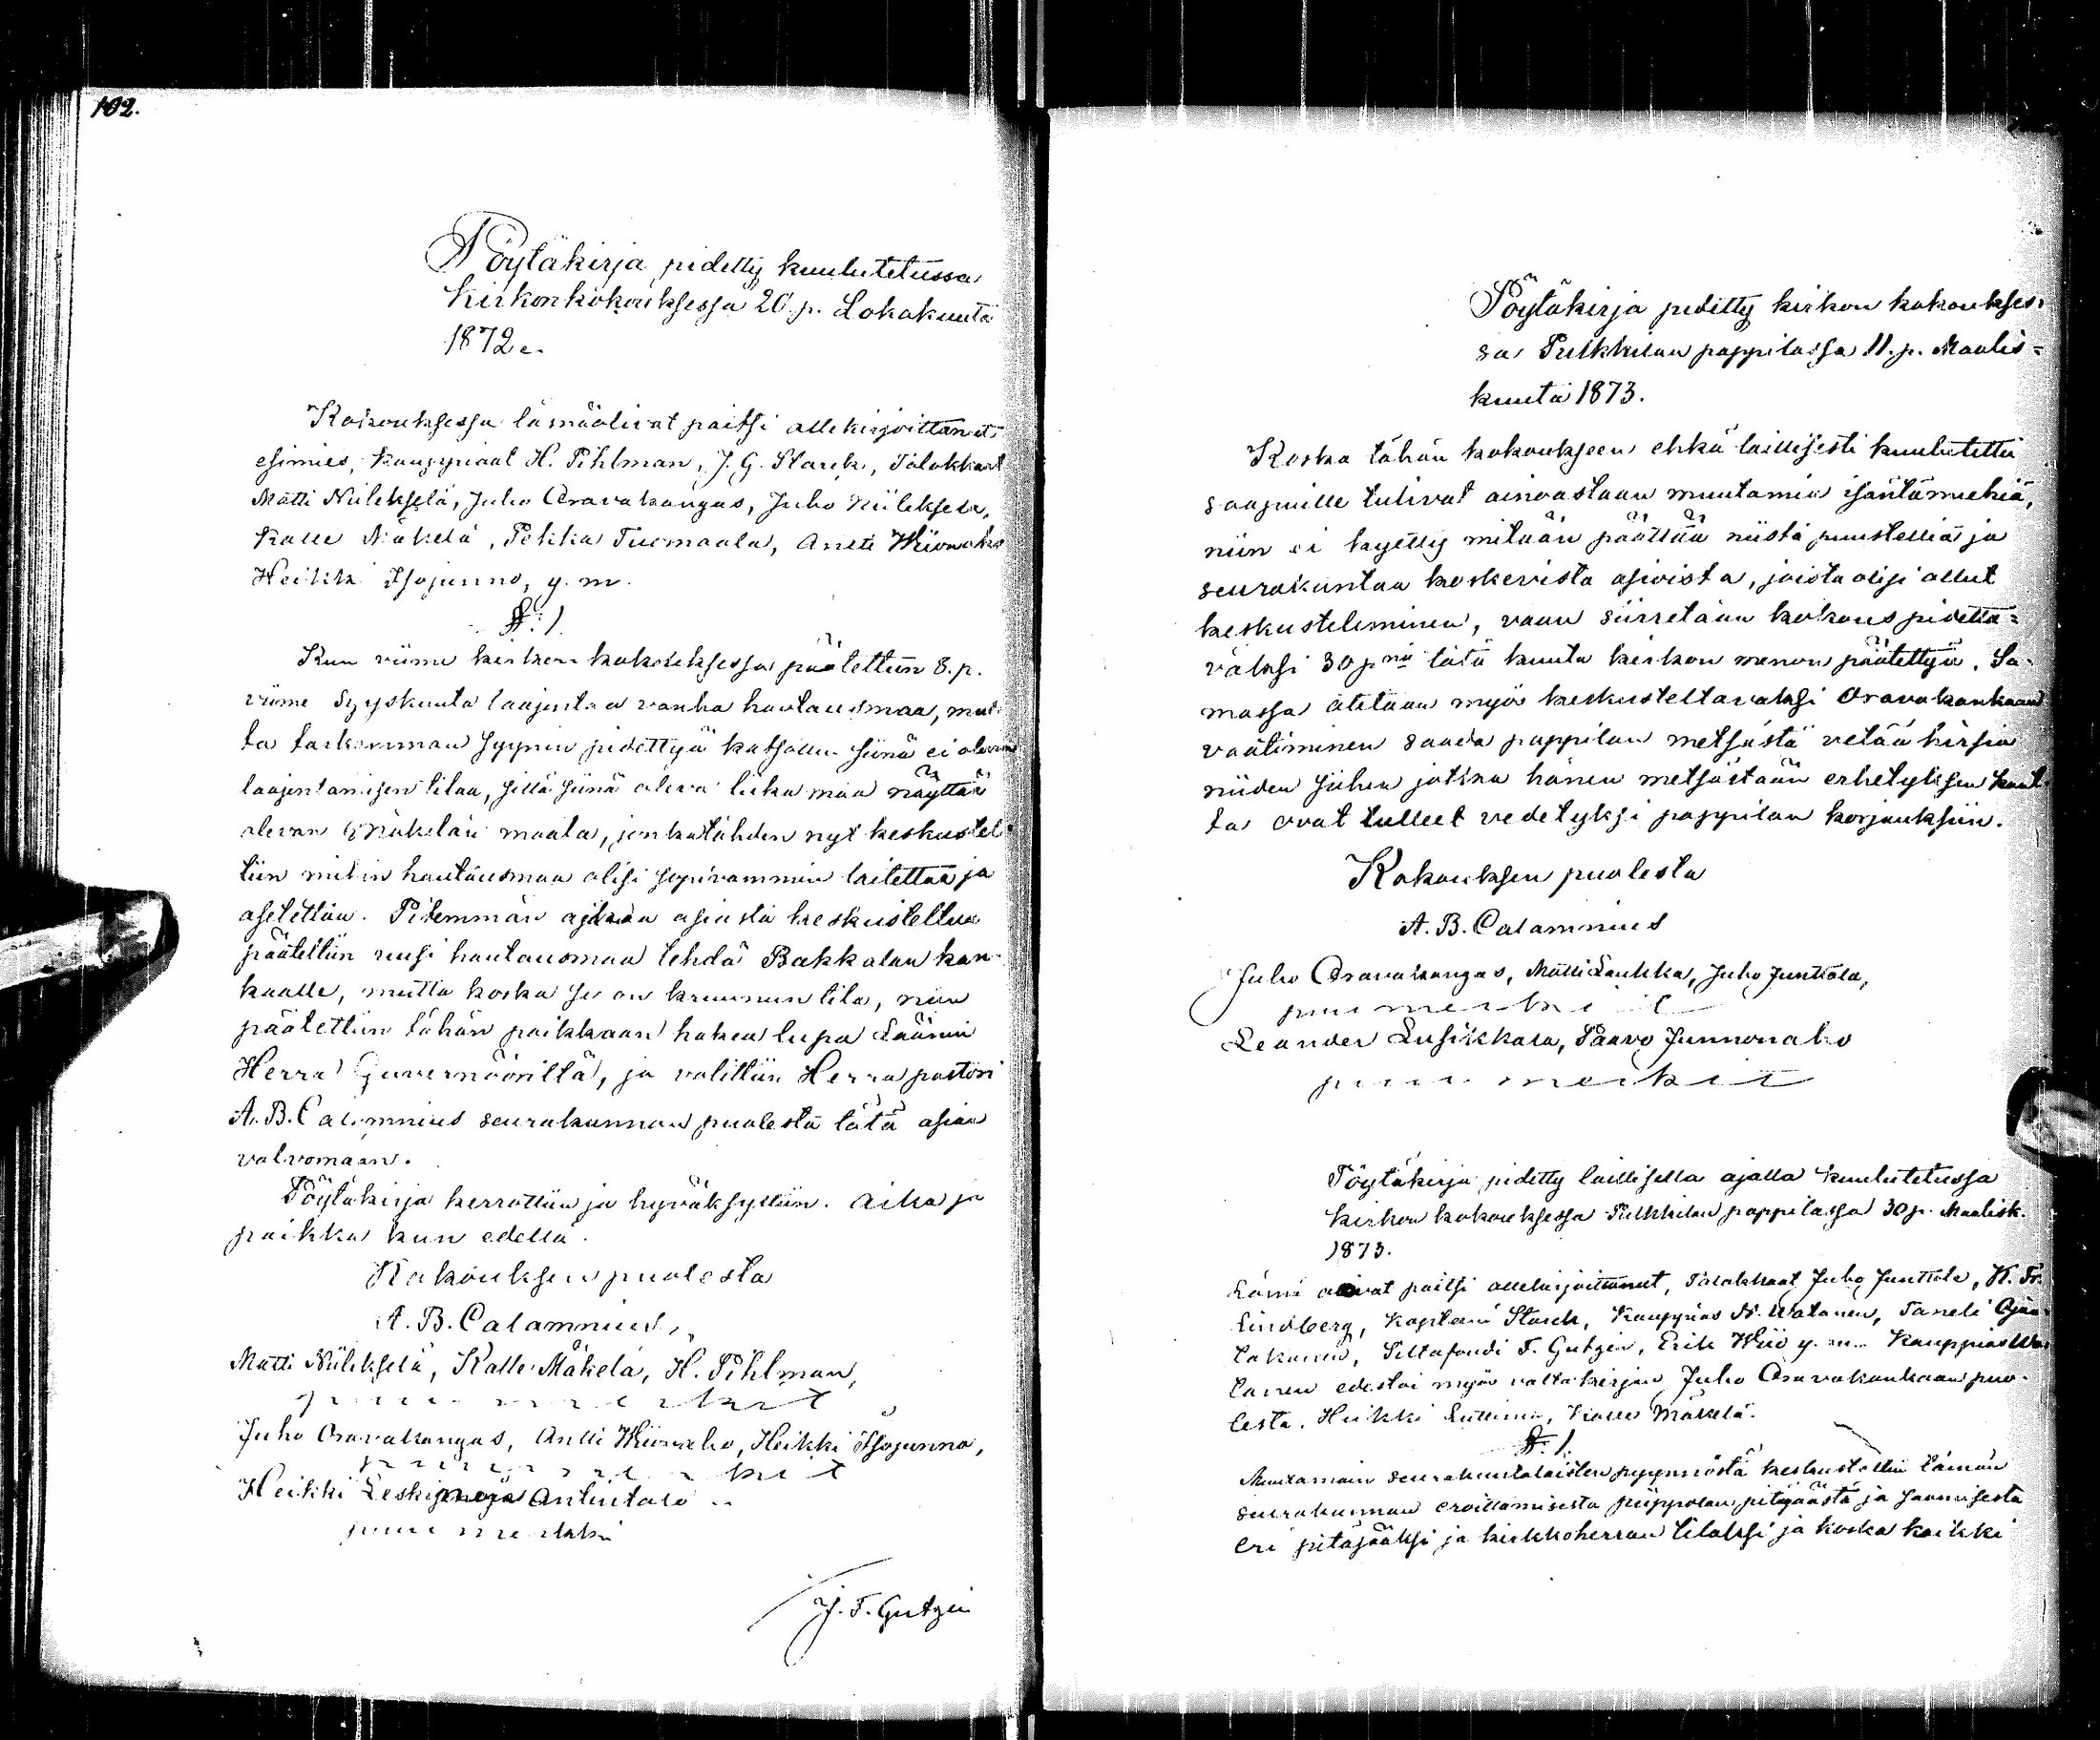 102.
Pöytäkirja pidetty kuulutetussa
kirkonkokouksessa 20. p. Lokakuuta
1872.
Kokouksessa läsnäolivat paitsi allekirjoittanut
esimies, kauppiaat H. Pihlman, J. G. Starck, Talokkaat
Matti Niilekselä, Juho Oravakangas, Juho Niilekselä,
Kalle Mäkelä, Pekka Tuomaala, Antti Wiionaho
Heikki Isojunno, y. m.
§: 1.
Kun viime kirkon kokouksessa päätettiin 8. p.
viime Syyskuuta laajentaa vanha hautausmaa, mut-
ta tarkemman syynin pidettyä katsottu siinä ei olevan
laajentamisen tilaa, sillä siinä oleva liika maa näyttää
olevan Mäkelän maata, jonkatähden nyt keskustel-
tiin mihin hautausmaa olisi sopivammin laitettaa ja
asetettaa. Pitemmän ajan asiasta keskusteltua
päätettiin uusi hautausmaa tehdä Bakkalan kan-
kaalle, mutta koska se on kruunun tila, niin
päätettiin tähän paikkaan hakea lupa Läänin
Herra Guvernöörillä, ja valittiin Herra pastori
A. B. Calamnius seurakunnan puolesta tätä asiaa
valvomaan.
Pöytäkirja kerrottiin ja hyväksyttiin. Aika ja
paikka kun edellä.
Kokouksen puolesta
A. B. Calamnius,
Matti Niilekselä, Kalle Mäkelä, H. Pihlman,
puumerkit
Juho Oravakangas, Antti Wiionaho, Heikki Isojunno,
puumerkit
Heikki Leskijenoja Antintalo
puumerkki
J. F. Gutzén
Pöytäkirja pidetty kirkon kokoukses-
sa Pulkkilan pappilassa 11. p. Maalis-
kuuta 1873.
Koska tähän kokoukseen ehkä laillisesti kuulutettu
saapuille tulivat ainoastaan muutamia isäntämiehiä,
niin ei käyetty mitään päättää niistä puustelliä ja
seurakuntaa koskevista asioista, joista olisi ollut
keskusteleminen, vaan siirretään kokous pidettä-
väksi 30 p:nä tätä kuuta kirkon menon päätettyä. Sa-
massa otetaan myös keskusteltavaksi Oravakankaan
vaatiminen saada pappilan metsästä vetää hirsiä
niiden siihen jotka hänen metsästään erhetyksen kaut-
ta ovat tulleet vedetyksi pappilan korjauksiin.
Kokouksen puolesta
A. B. Calamnius
Juho Oravakangas, Matti Laukka, Juho Junttola,
puumerkit
Leander Lusikkala, Paavo Junnonaho
puumerkit
Pöytäkirja pidetty laillisella ajalla kuulutetussa
kirkon kokouksessa Pulkkilan pappilassa 30 p. Maalisk.
1873.
Läsnä olivat paitsi allekirjoittanut, Talokkaat Juho Junttola, K. Fr.
Lindberg, Kapteeni Starck, Kauppias N. Watanen, Taneli
Siltafoudi F. Gutzén, Erik Wiio y. m. Kauppias Wa-
tanen edestoi myös valtakirjan Juho Oravakankaan puo-
lesta. Heikki Kalle Mäkelä.
§: 1.
Muutamain seurakuntalaisten pyynnöstä keskusteltiin tämän
seurakunnan eroittamisesta piippolan pitäjäästä ja saamisesta
eri pitäjääksi ja kirkkoherran tilaksi ja koska kaikki